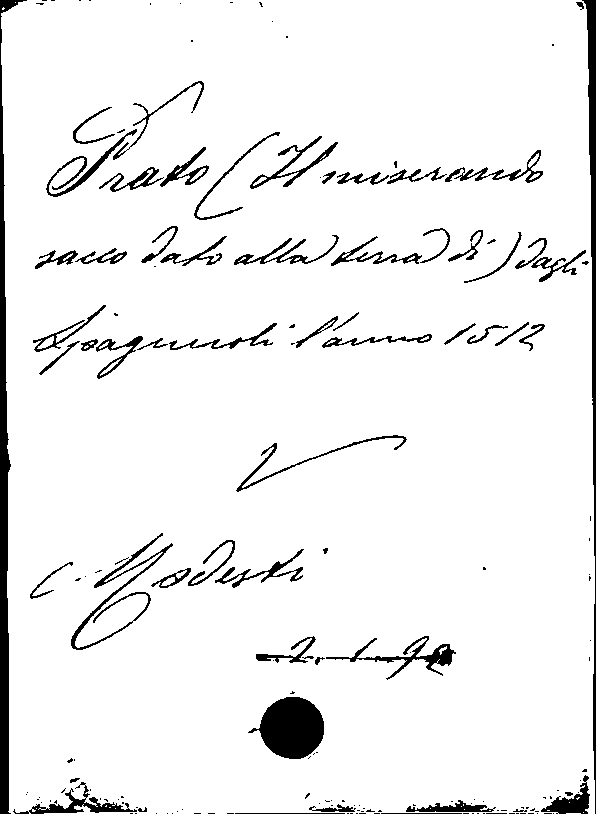 Prato (Il miserando
sacco dato alla terra di) dagli
Spagnuoli l'anno 1512
V
C. Modesti